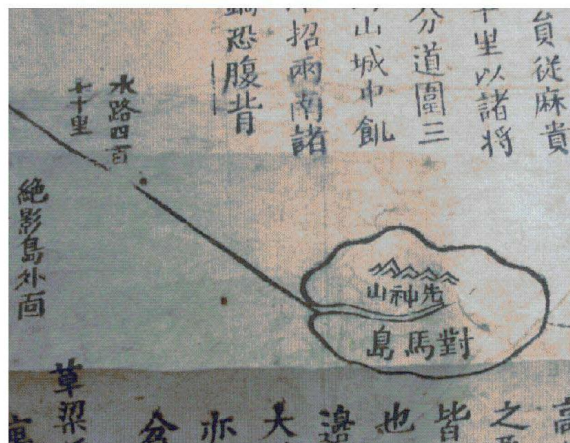 員從麻貴
里以諸将
分道圍三
山城中飢
招兩南諸
恐腹背
水路四百
七十里
絶影島外面
先神山
對馬島
高
之
皆
也
邊
大
亦
草梁